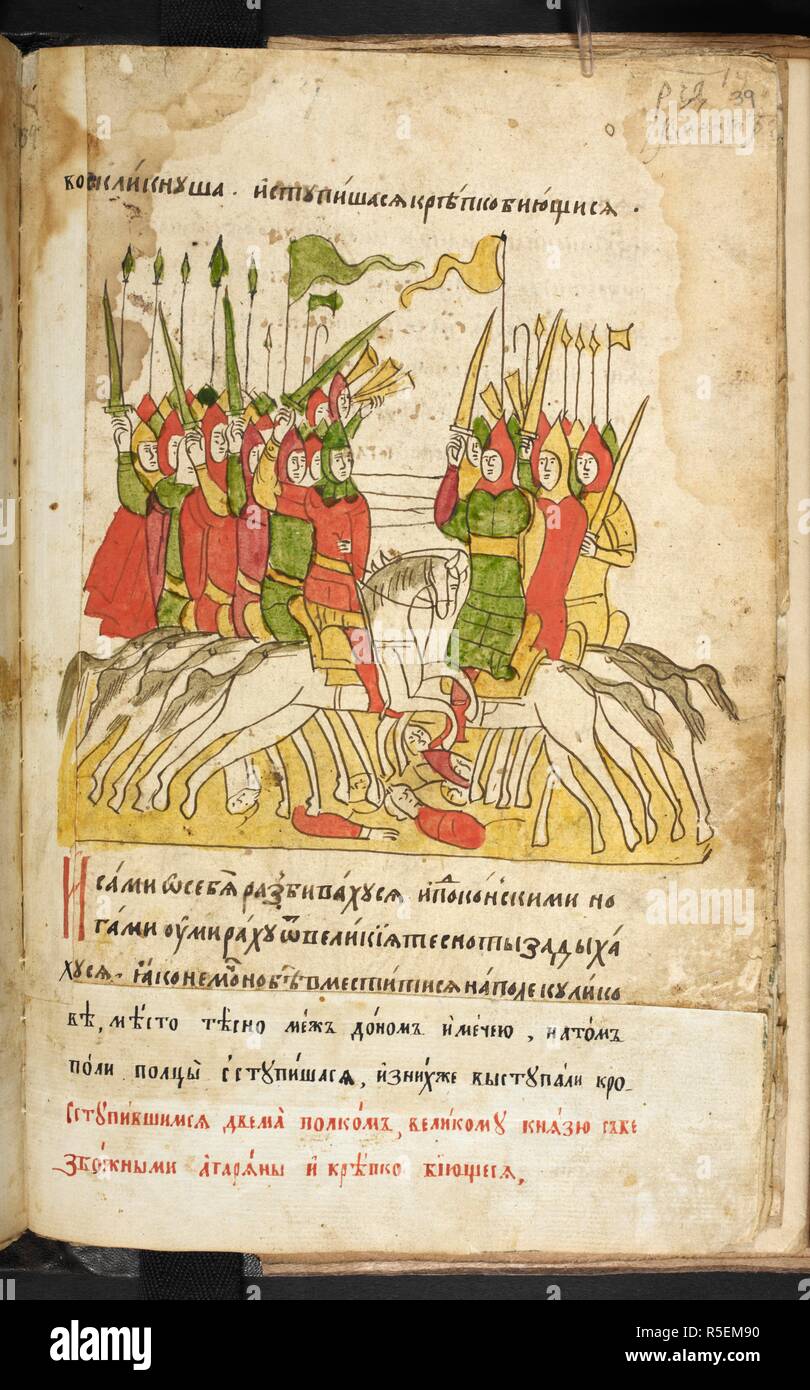 39
воскликнуша . и҆ступи́шасѧ крѣ́пко бию́щисѧ .
И са́ми ѿ себѧ̀ разбива́хусѧ и҆ по́ко́нскими но
га́ми оу҆мира́ху ѿ вели́кїѧ тесноты̀ задыха́
хусѧ . ꙗ҆́ко не мо́щно бѣ̀ вмести́тисѧ на поле кули́ко
вѣ, мѣ́сто тѣ́сно ме́жъ до́номъ и҆ мече́ю , на то́мъ
по́ли полцы̀ сступи́шасѧ, и҆з ни́хже выступа́ли кро-
Сступи́вшимсѧ двема̀ полко́мъ, вели́кому кнѧ́зю съ бе
збо́жными а҆гарѧ́ны и҆ крѣ́пко бїю́щесѧ,
alamy
R5EM90
www.alamy.com